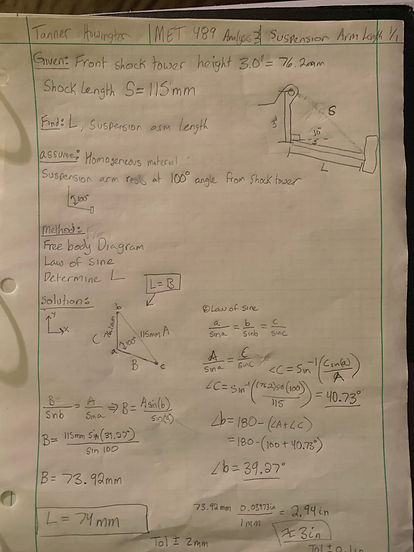 Tanner Howington | MET 489 Analysis 3 | Suspension Arm Length 1/1
Given: Front shock tower height 3.0" = 76.2mm
Shock Length S = 115mm
S
3"
L
Find: L, Suspension arm Length
assume: Homogeneous material
Suspension arm rests at 100° angle from shock tower
100°
Method:
Free body Diagram
Law of Sine
Determine L
L = B
Solution:
y
x
b
76.2mm
115mm A
C
100°
a
B
c
① Law of sine
a/sin a = b/sin b = c/sin c
A/sin a = C/sin c
∠C = Sin⁻¹(C sin(a)/A)
∠C = Sin⁻¹((76.2) sin(100)/115) = 40.73°
∠b = 180 - (∠A + ∠C)
= 180 - (100 + 40.73°)
∠b = 39.27°
B/Sin b = A/Sin a ⇒ B = A sin(b)/sin(a)
B = 115mm Sin(39.27°)/Sin 100
B = 73.92mm
L = 74mm
Tol ± 2mm
73.92mm 0.03937in/1mm = 2.94in
≈ 3in
Tol ± 0.1in